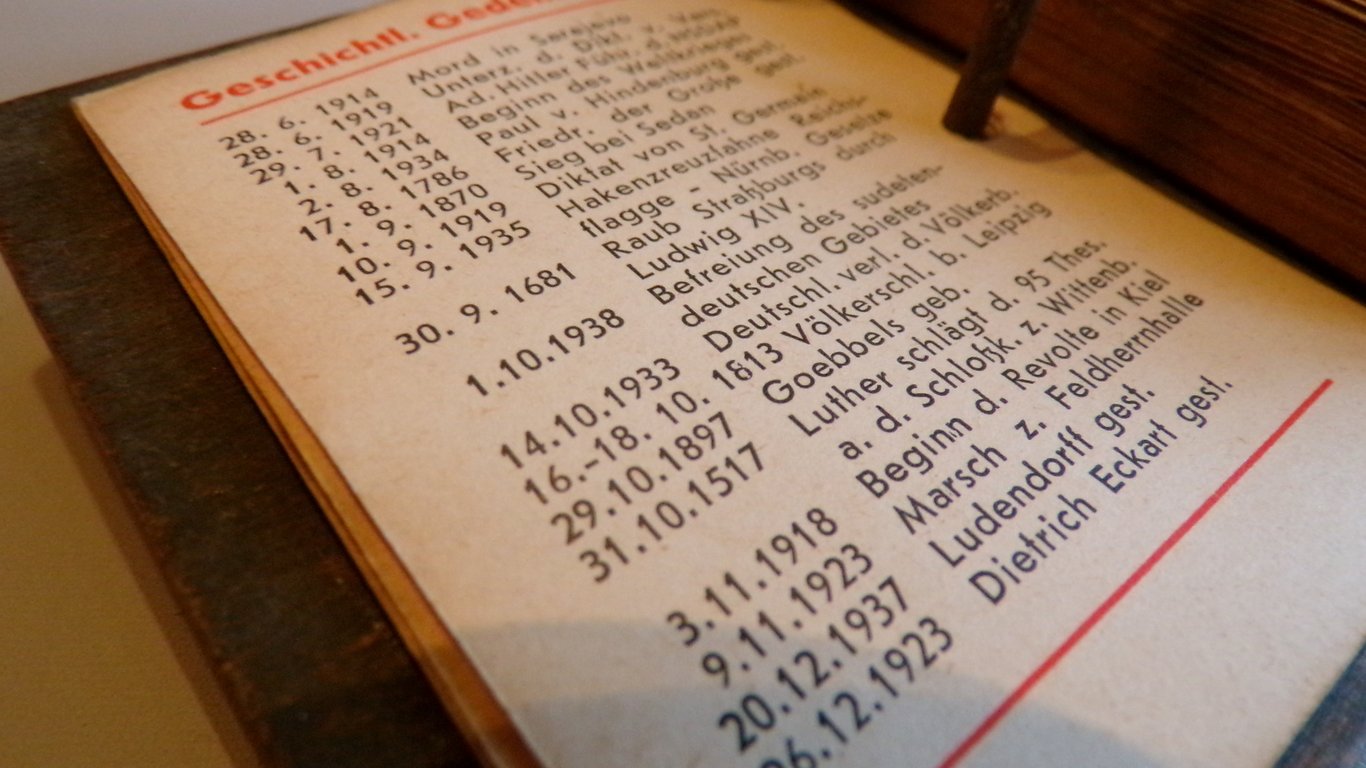 Geschichtl. Geden
28. 6. 1914 Mord in Serajevo
28. 6. 1919 Unterz. d. Dikt. v. Vers
29. 7. 1921 Ad. Hitler Führ. d. NSDAP
1. 8. 1914 Beginn des Weltkrieges
2. 8. 1934 Paul v. Hindenburg gest.
17. 8. 1786 Friedr. der Große gest.
1. 9. 1870 Sieg bei Sedan
10. 9. 1919 Diktat von St. Germain
15. 9. 1935 Hakenkreuzfahne Reichs-
flagge - Nürnb. Gesetze
30. 9. 1681 Raub Straßburgs durch
Ludwig XIV.
1.10.1938 Befreiung des sudeten-
deutschen Gebietes
14.10.1933 Deutschl. verl. d. Völkerb.
16.-18. 10. 1813 Völkerschl. b. Leipzig
29.10.1897 Goebbels geb.
31.10.1517 Luther schlägt d. 95 Thes.
a. d. Schloßk. z. Wittenb.
3.11.1918 Beginn d. Revolte in Kiel
9.11.1923 Marsch z. Feldherrnhalle
20.12.1937 Ludendorff gest.
26.12.1923 Dietrich Eckart gest.